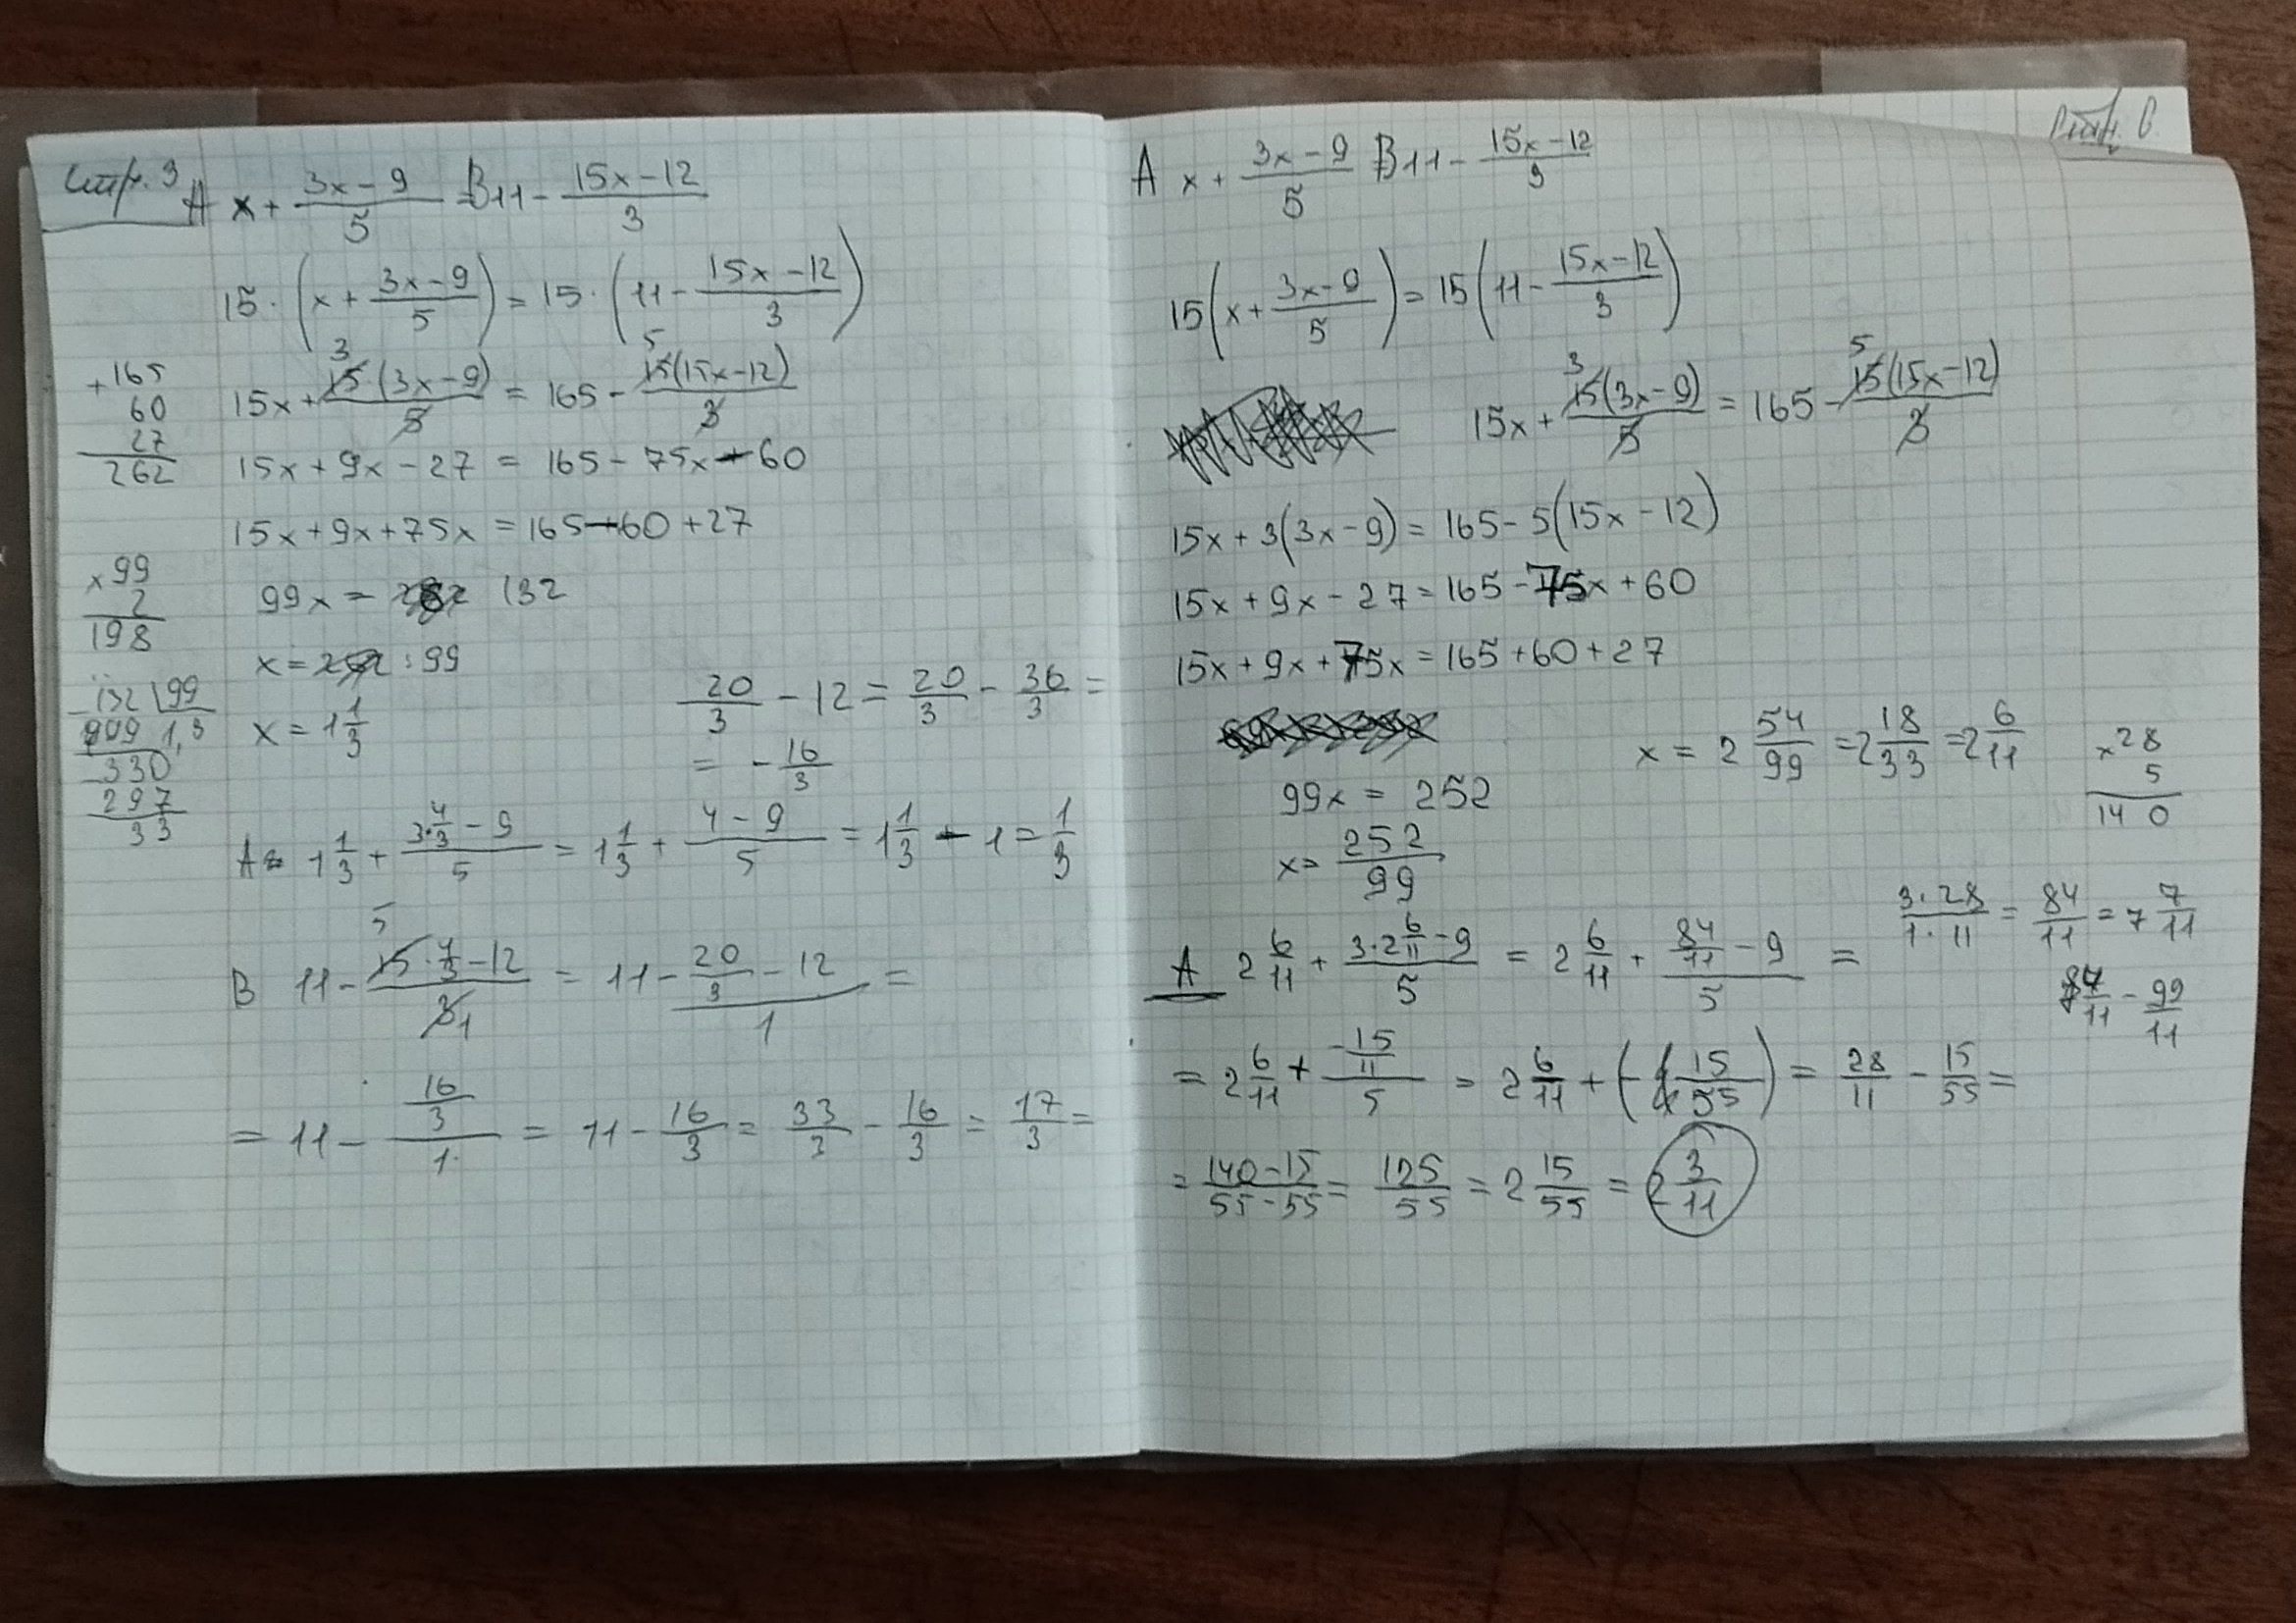 Стр. 3
A x + (3x - 9)/5 = B 11 - (15x - 12)/3
15 · (x + (3x - 9)/5) = 15 · (11 - (15x - 12)/3)
15x + 15·(3x - 9)/5 = 165 - 15(15x - 12)/3
3 5
15x + 9x - 27 = 165 - 75x - 60
15x + 9x + 75x = 165 - 60 + 27
99x = 132
x = : 99
x = 1 1/3
+ 165
60
27
262
× 99
2
198
132 | 99
909 1,3
- 330
297
33
20/3 - 12 = 20/3 - 36/3 =
= - 16/3
A = 1 1/3 + (3·4/3 - 9)/5 = 1 1/3 + (4 - 9)/5 = 1 1/3 - 1 = 1/3
5
B 11 - (15·4/3 - 12)/3 1 = 11 - (20/3 - 12)/1 =
= 11 - (16/3)/1 = 11 - 16/3 = 33/3 - 16/3 = 17/3 =
A x + (3x - 9)/5 B 11 - (15x - 12)/3
15(x + (3x - 9)/5) = 15(11 - (15x - 12)/3)
3 5
15x + 15(3x - 9)/5 = 165 - 15(15x - 12)/3
15x + 3(3x - 9) = 165 - 5(15x - 12)
15x + 9x - 27 = 165 - 75x + 60
15x + 9x + 75x = 165 + 60 + 27
99x = 252
x = 252/99
x = 2 54/99 = 2 18/33 = 2 6/11
× 28
5
140
(3 · 28)/(1 · 11) = 84/11 = 7 7/11
84/11 - 99/11
A 2 6/11 + (3·2 6/11 - 9)/5 = 2 6/11 + (84/11 - 9)/5 =
= 2 6/11 + (-15/11)/5 = 2 6/11 + (- 15/55) = 28/11 - 15/55 =
= (140 - 15)/(55 - 55) = 125/55 = 2 15/55 = 2 3/11